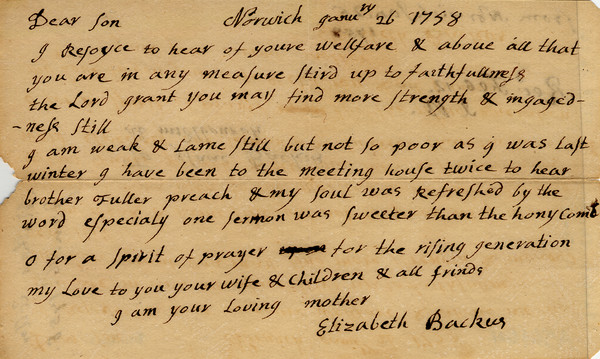 Dear Son Norwich Janury 26 1758
I Rejoyce to hear of youre wellfare & above all that
you are in any measure stird up to faithfullness
the Lord grant you may find more strength & ingaged-
-ness still
I am weak & Lame still but not so poor as I was Last
winter I have been to the meeting house twice to hear
brother Fuller preach & my soul was Refreshed by the
word especialy one sermon was sweeter than the hony Comb
O for a spirit of prayer for the rising generation
my Love to you your wife & Children & all frinds
I am your Loving mother
Elizabeth Backus